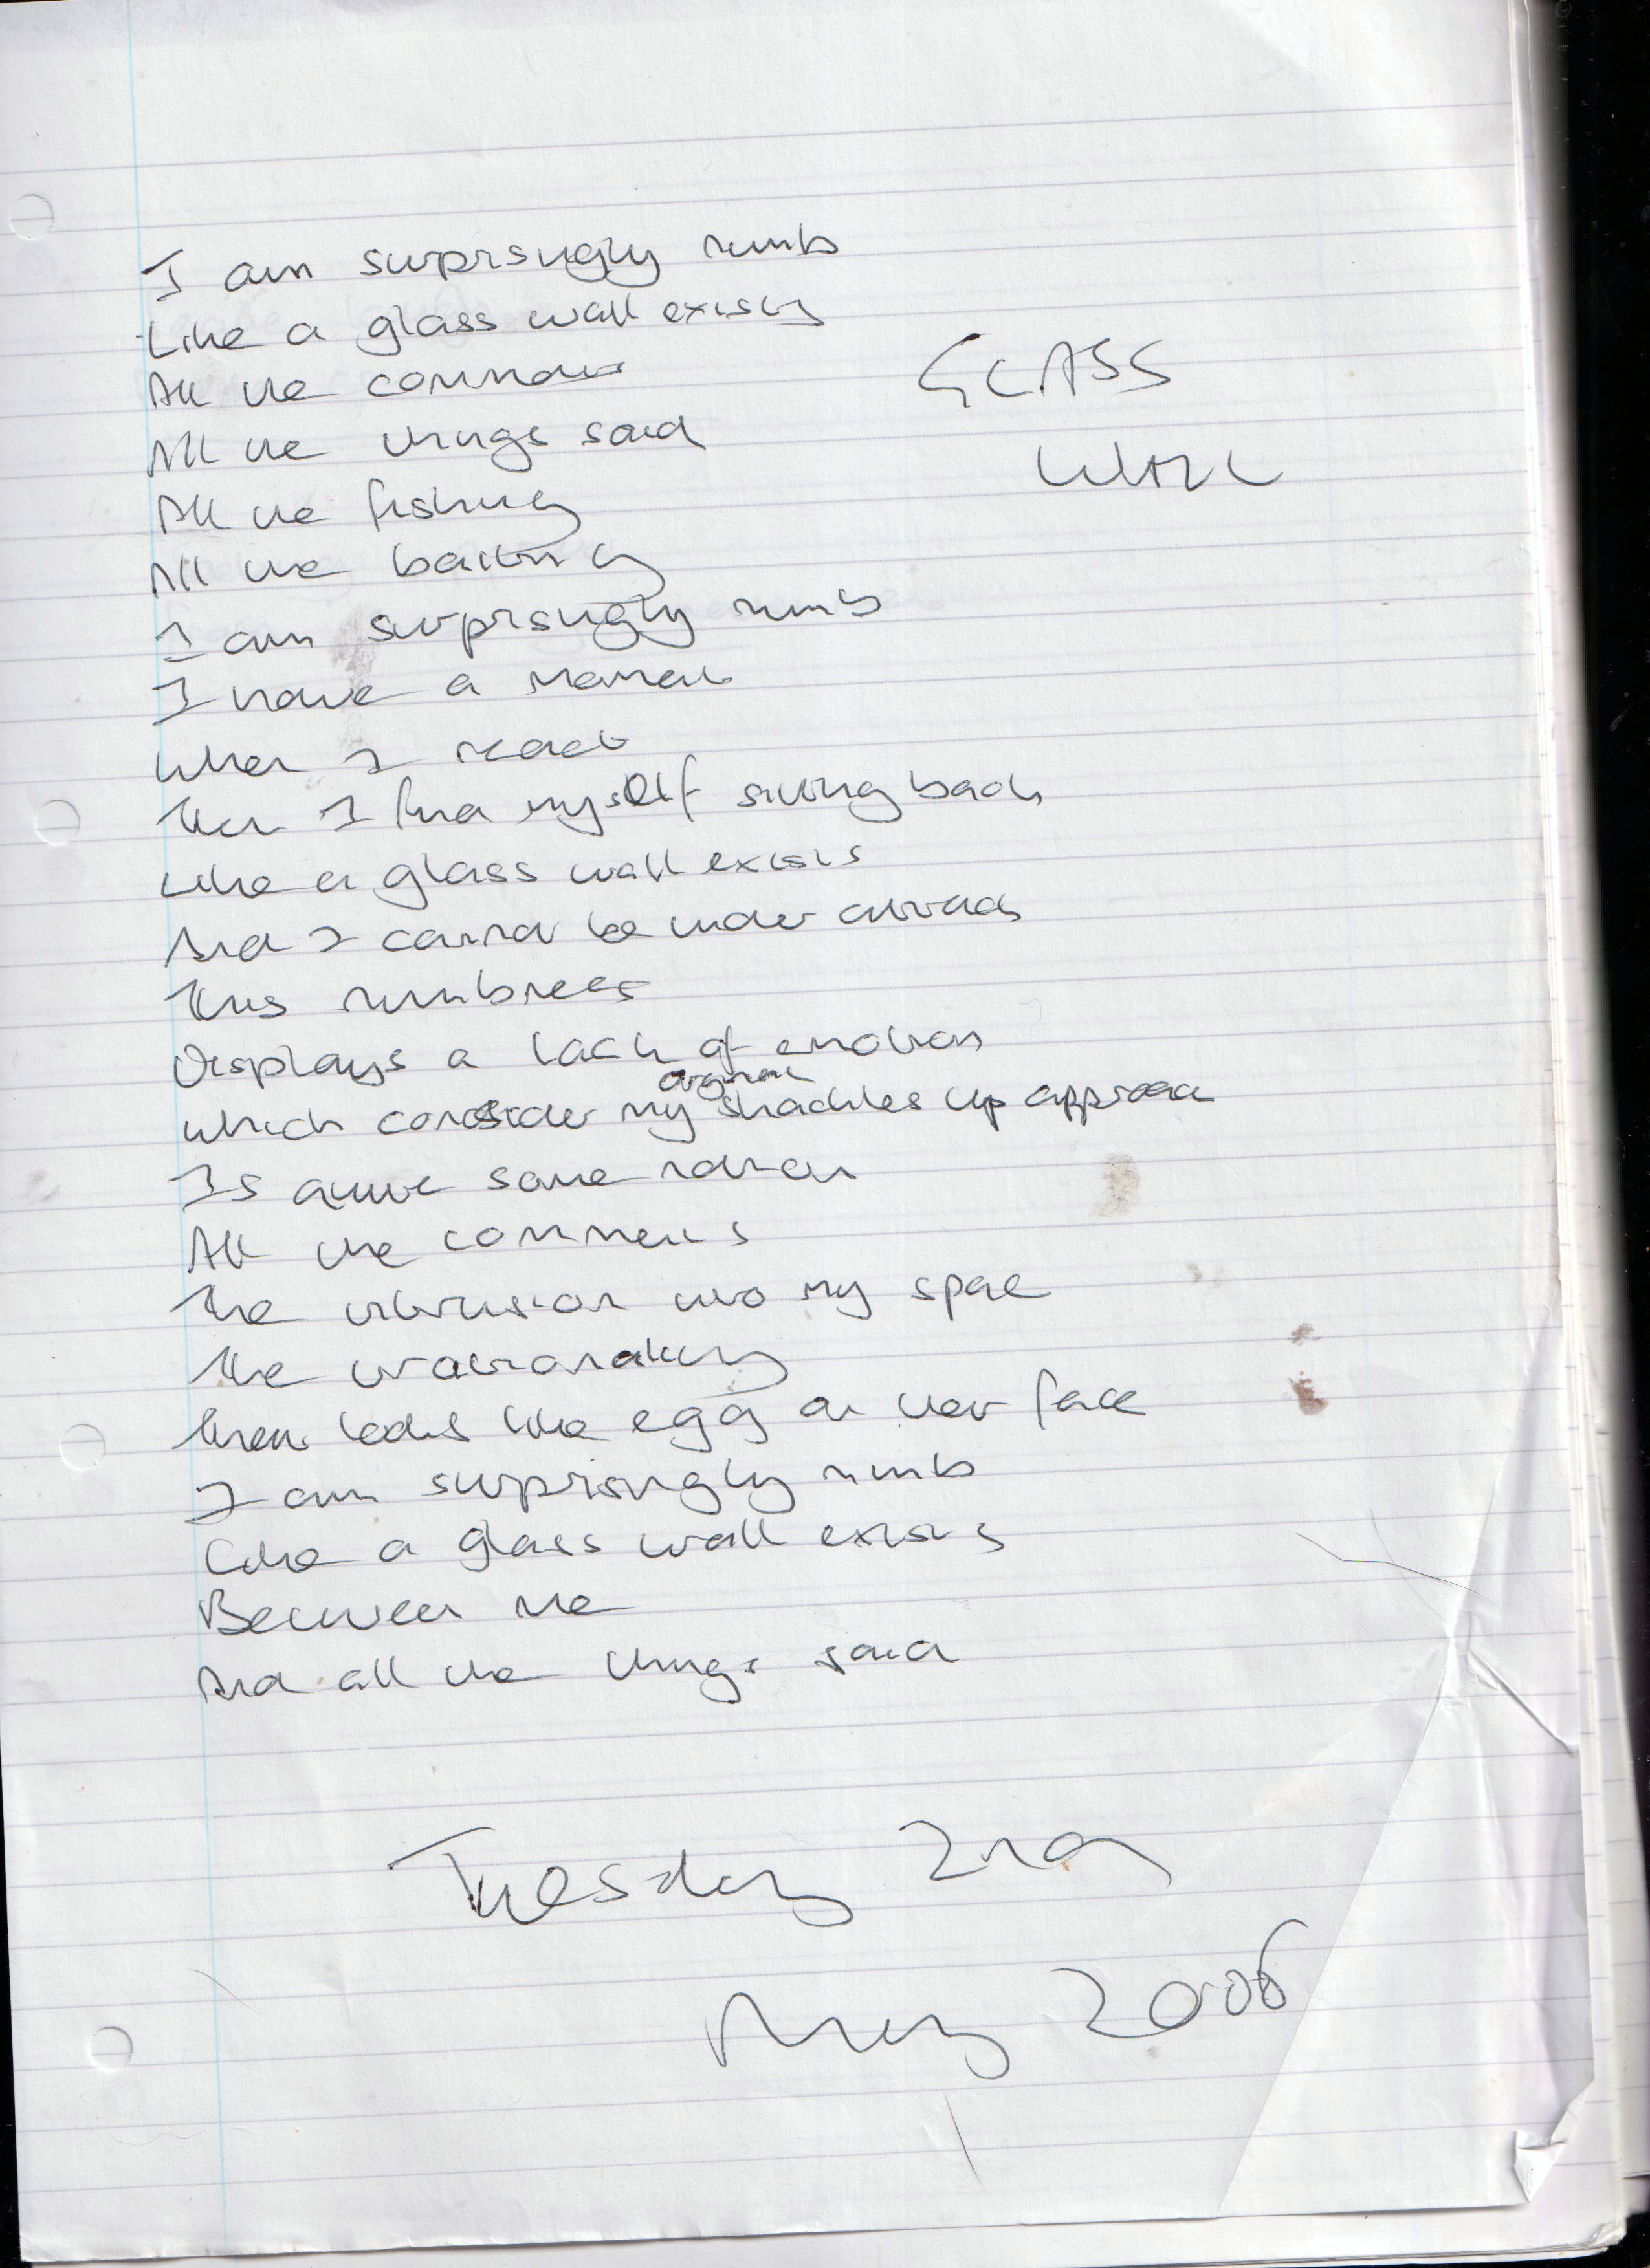 I am surprsingly numb
Like a glass wall exists
GLASS
All the comments
WALL
All the things said
All the fishing
All the baiting
I am surprsingly numb
I have a moment
When I react
Then I find myself sitting back
Like a glass wall exists
And I cannot be under
This numbness
Displays a lack of emotion
original
which consider my shackles up
Is quite some notion
All the comments
The intrusion into my space
The
looks like egg on their face
I am surprisingly numb
Like a glass wall exists
Between me
And all the things said
Tuesday 2nd
May 2006